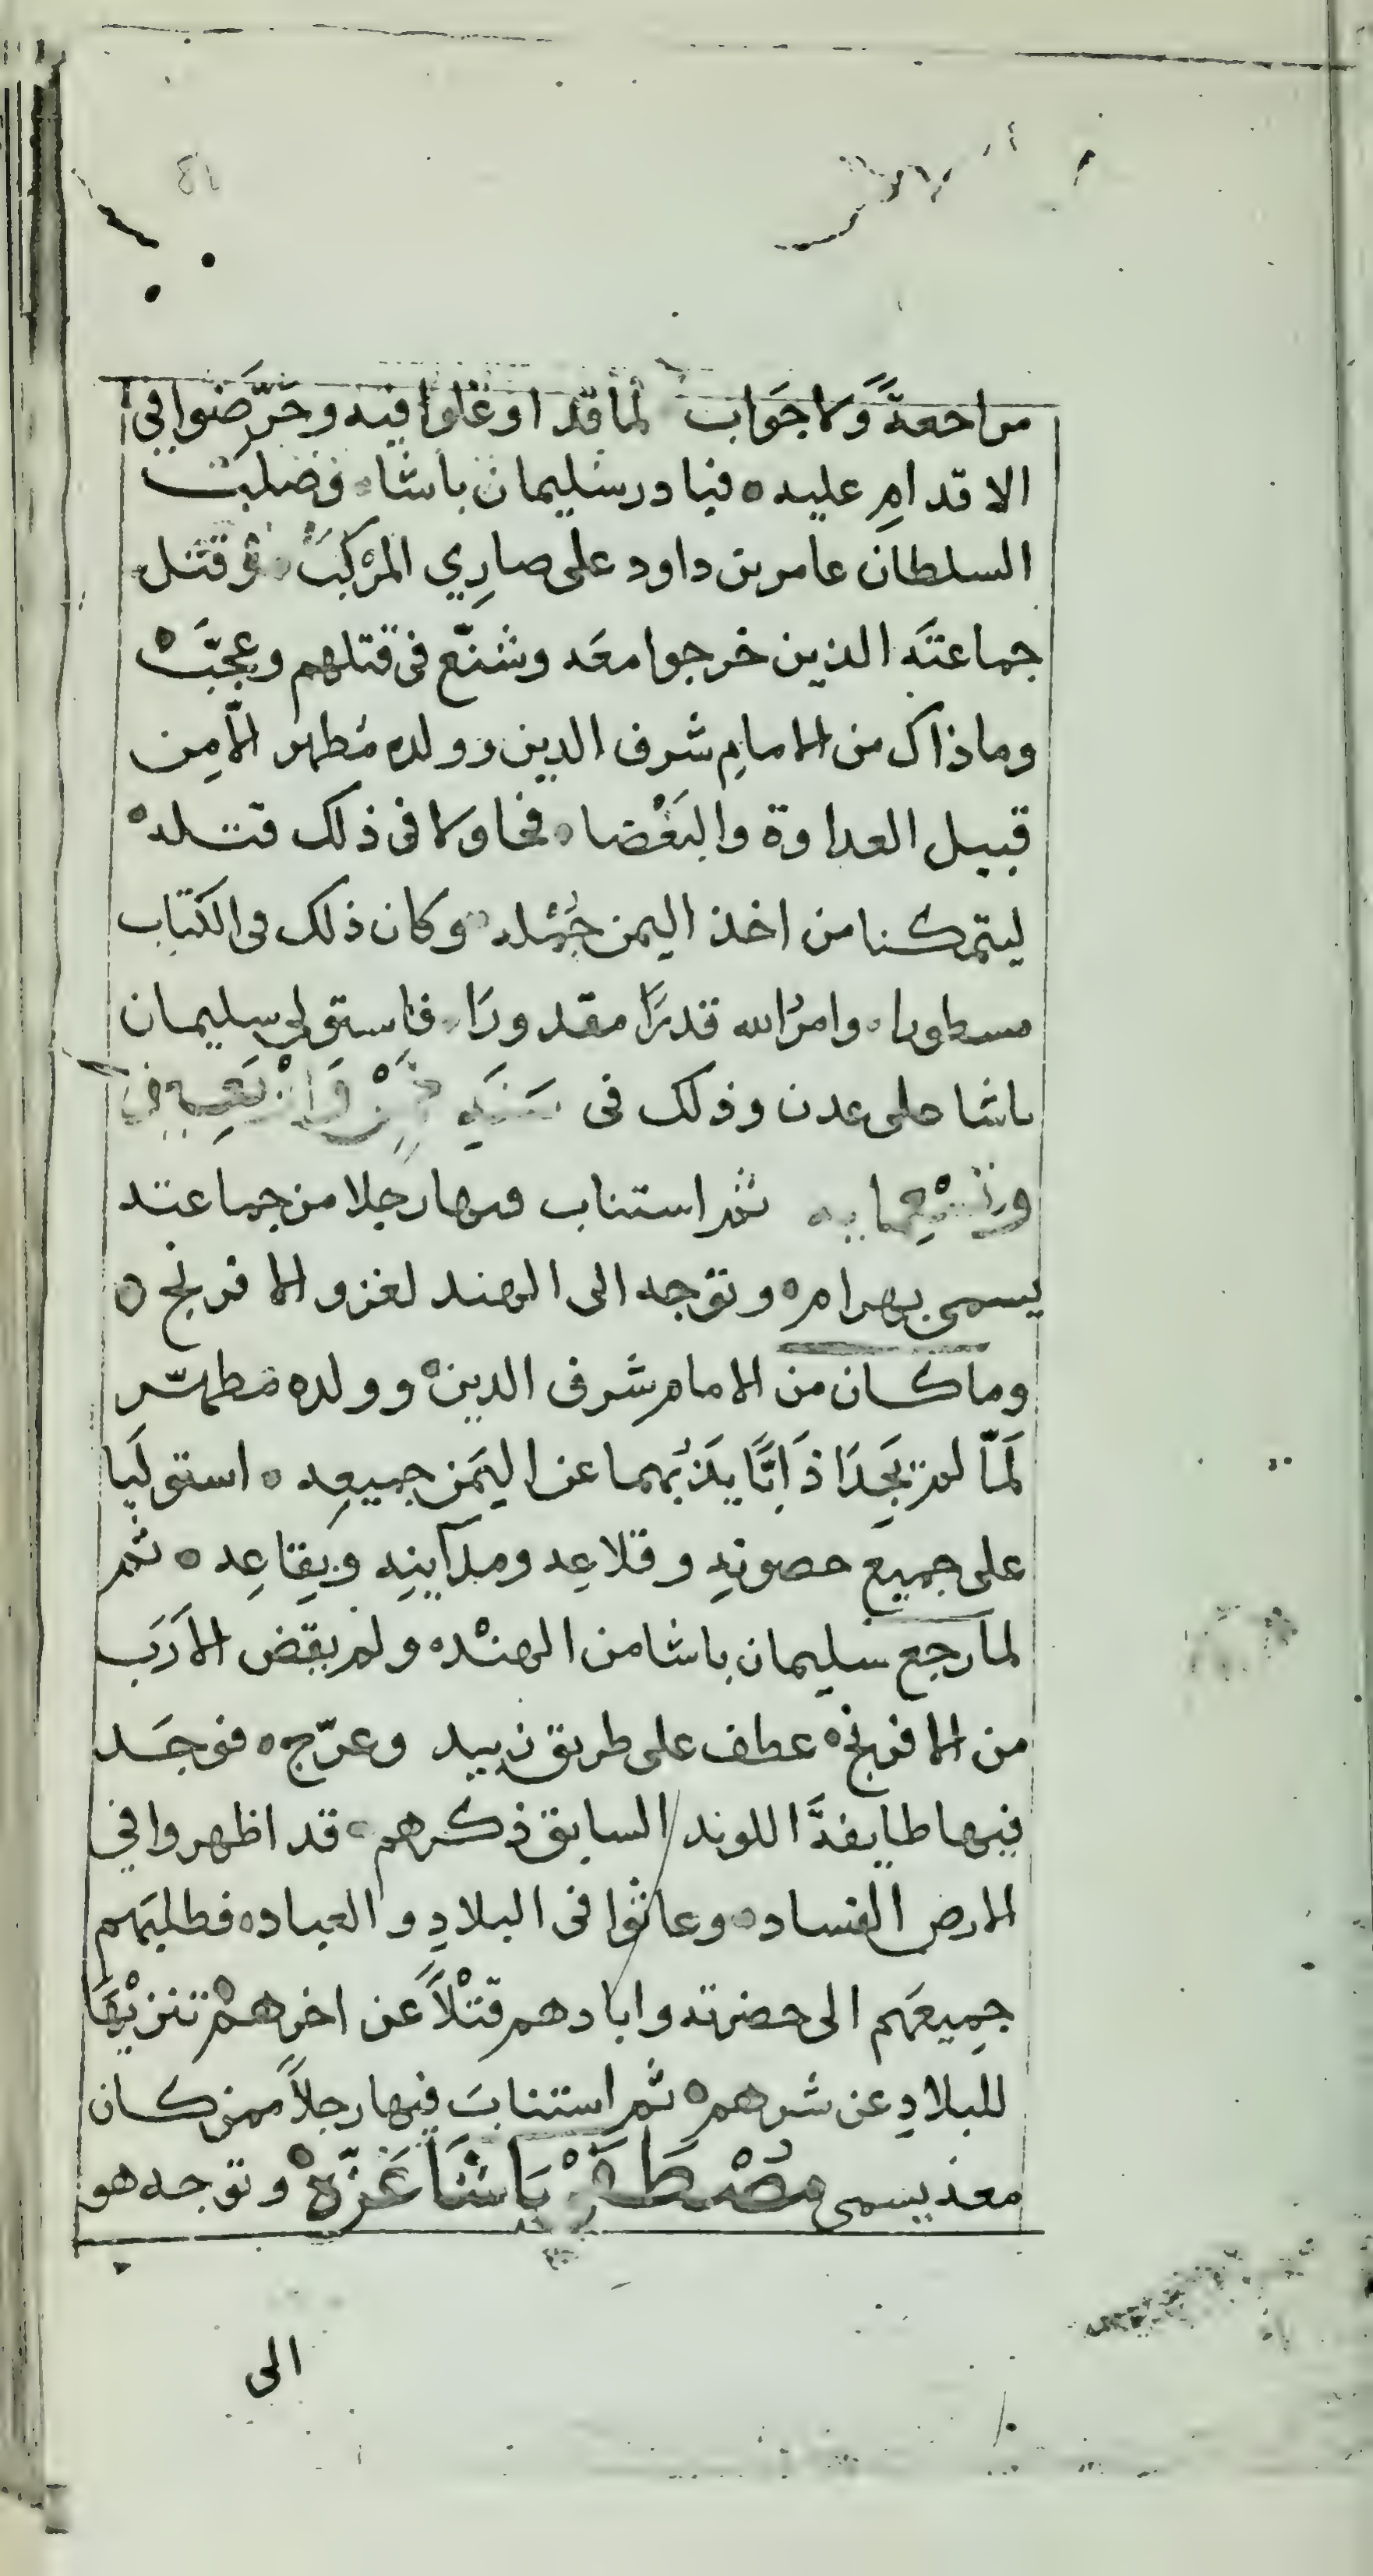 مراجعةً ولا جَوَاب لما قد اوغلوا فيه وحَرَّضوا في
الاقدامِ عليه ه فبادر سليمان باشا ه وصلبَ
السلطان عامر بن داود على صارِي المرْكبَ ه وقتل
جماعتَه الذين خرجوا معَه وشنّع فى قتلهم وعجّبَ ه
وما ذاك من الامامِ شرف الدين وولده مُطهر الّا مِن
قبيل العداوة والبَغْضا ه فحاولا فى ذلك قتله ه
ليتمكنا من اخذ اليمن جُمْله ه وكان ذلك فى الكتاب
مسطورا ه وامرُ الله قدرًا مقدورًا ه فاستولى سليمان
باشا على عدن وذلك فى سَنَة خمْس وَارْبَعِين
وتسْعِمايه ثمر استناب فيها رجلا من جماعته
يسمى بهرام ه وتوجه الى الهند لغزو الافرنج ه
وما كان من الامام شرف الدين ه وولده مُطهّر
لَمّا لم يَجِدَا ذَابًّا يَذُبّهما عن اليَمَن جميعِه ه استوليَا
على جميع حصونِهِ وقلاعِه ومدآينِهِ وبِقاعِه ه ثمر
لما رجع سليمان باشا من الهنْد ه ولم يقض الاَرَب
من الافرنج ه عطف على طريق زبيد وعرّج ه فوجَد
فيها طايفةَ اللوند السابق ذكرهم ه قد اظهروا في
الارض الفساد ه وعاثوا فى البلادِ والعباد ه فطلبَهم
جمِيعَهم الى حضرته وابادهم قتْلاً عن اخرِهمْ تنزيْهًا
للبلادِ عن شرهم ه ثمر استنابَ فيها رجلاً ممن كان
معه يسمى مُصْطَفىْ بَاشَا غَزّهْ وتوجه هو
الى